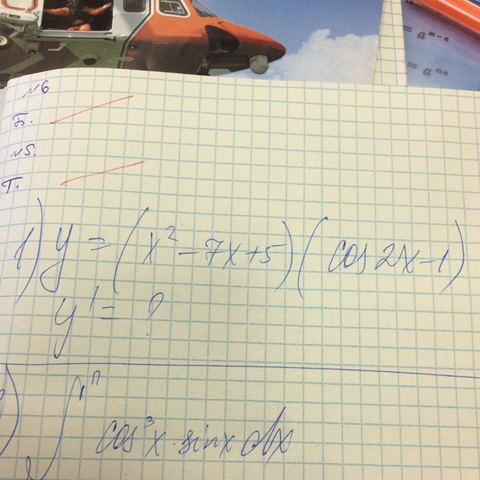 = aᵐ⁻ⁿ
№6
Б.
№5.
Т.
1) y = (x² - 7x + 5)(cos 2x - 1)
y' = ?
∫ cos³x · sinx dx